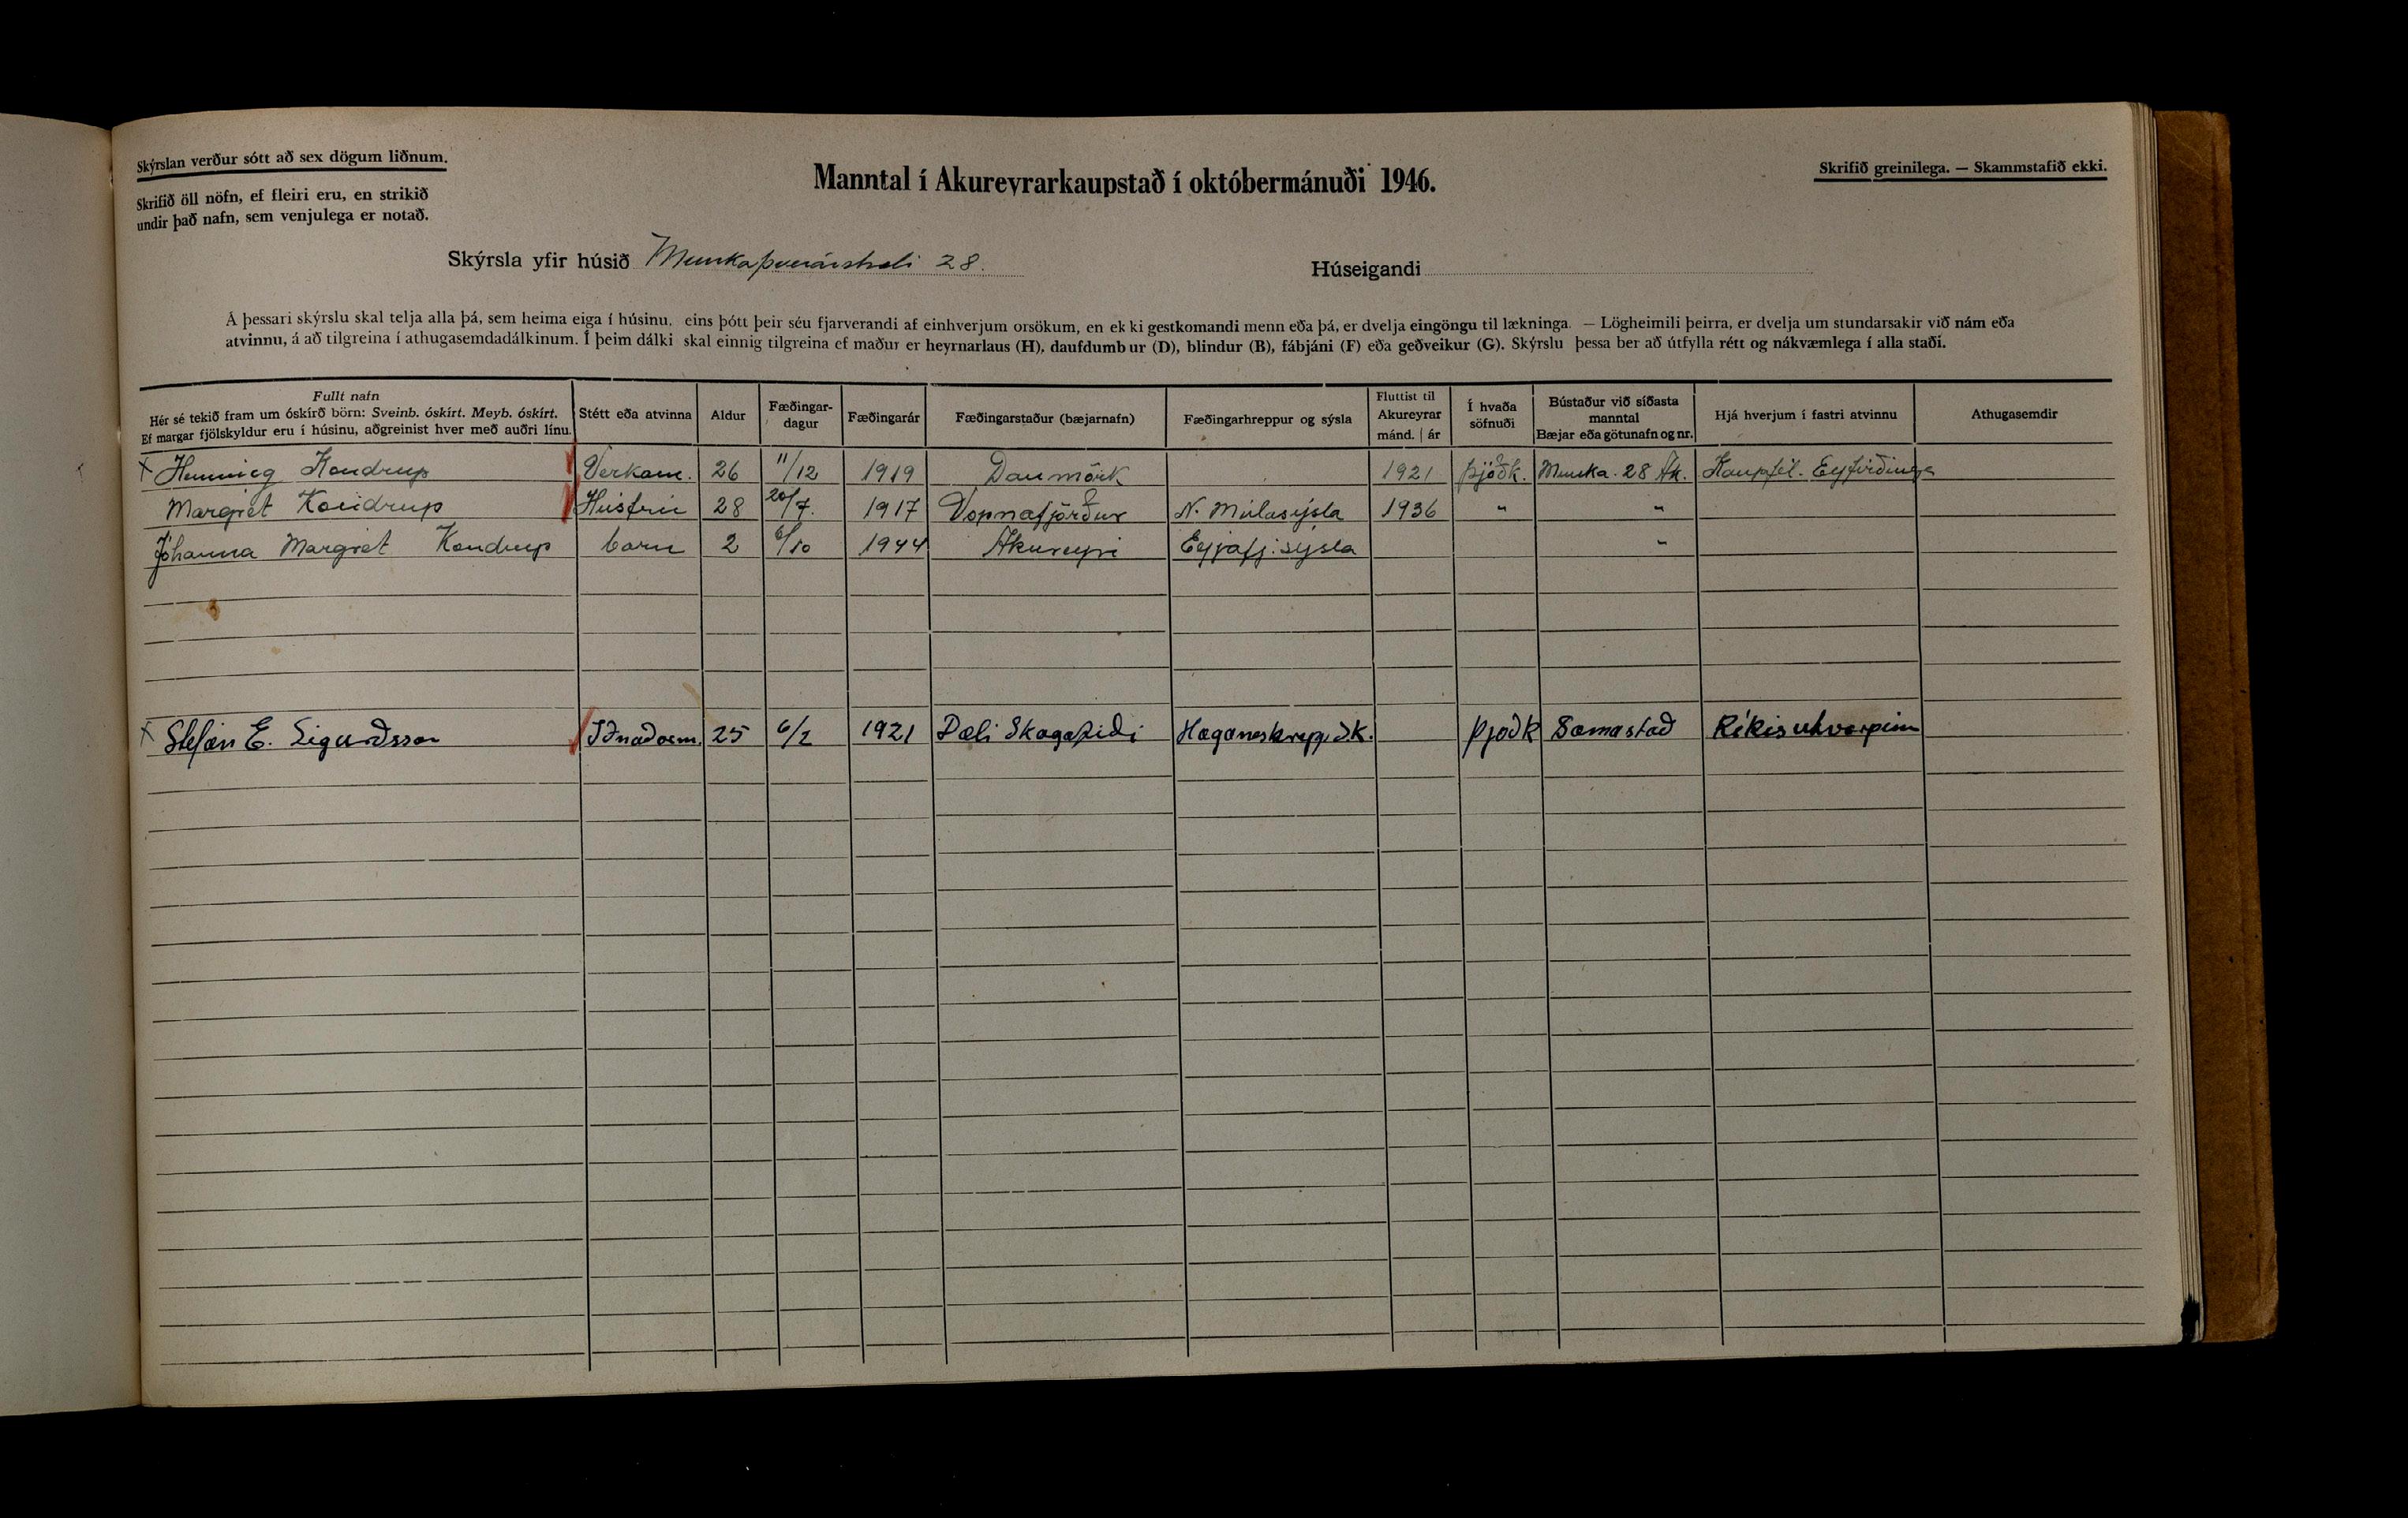 Skýrslan verður sótt að sex dögum liðnum.
Skrifið öll nöfn, ef fleiri eru, en strikið
undir það nafn, sem venjulega er notað.
Manntal í Akureyrarkaupstað í októbermánuði 1946.
Skrifið greinilega. — Skammstafið ekki.
Skýrsla yfir húsið Munkaþverárstræti 28.
Húseigandi
Á þessari skýrslu skal telja alla þá, sem heima eiga í húsinu, eins þótt þeir séu fjarverandi af einhverjum orsökum, en ekki gestkomandi menn eða þá, er dvelja eingöngu til lækninga. — Lögheimili þeirra, er dvelja um stundarsakir við nám eða
atvinnu, á að tilgreina í athugasemdadálkinum. Í þeim dálki skal einnig tilgreina ef maður er heyrnarlaus (H), daufdumbur (D), blindur (B), fábjáni (F) eða geðveikur (G). Skýrslu þessa ber að útfylla rétt og nákvæmlega í alla staði.
Fullt nafn
Hér sé tekið fram um óskírð börn: Sveinb. óskírt. Meyb. óskírt.
Ef margar fjölskyldur eru í húsinu, aðgreinist hver með auðri línu.
Stétt eða atvinna
Aldur
Fæðingar-
dagur
Fæðingarár
Fæðingarstaður (bæjarnafn)
Fæðingarhreppur og sýsla
Fluttist til
Akureyrar
mánd. | ár
Í hvaða
söfnuði
Bústaður við síðasta
manntal
Bæjar eða götunafn og nr.
Hjá hverjum í fastri atvinnu
Athugasemdir
x Henning Kondrup Verkam. 26 11/12 1919 Danmörk 1921 þjóðk. Munka. 28 Ak. Kaupfél. Eyfirðinga
Margrét Kondrup Húsfrú 28 20/7. 1917 Vopnafjörður N. Múlasýsla 1936 " "
Jóhanna Margrét Kondrup barn 2 6/10 1944 Akureyri Eyjafj. sýsla "
x Stefán E. Sigurðsson Iðnaðarm. 25 6/2 1921 Dæli Skagafiði Haganeshrepp. Sk. Þjoðk Samastað Ríkisutvarpinu